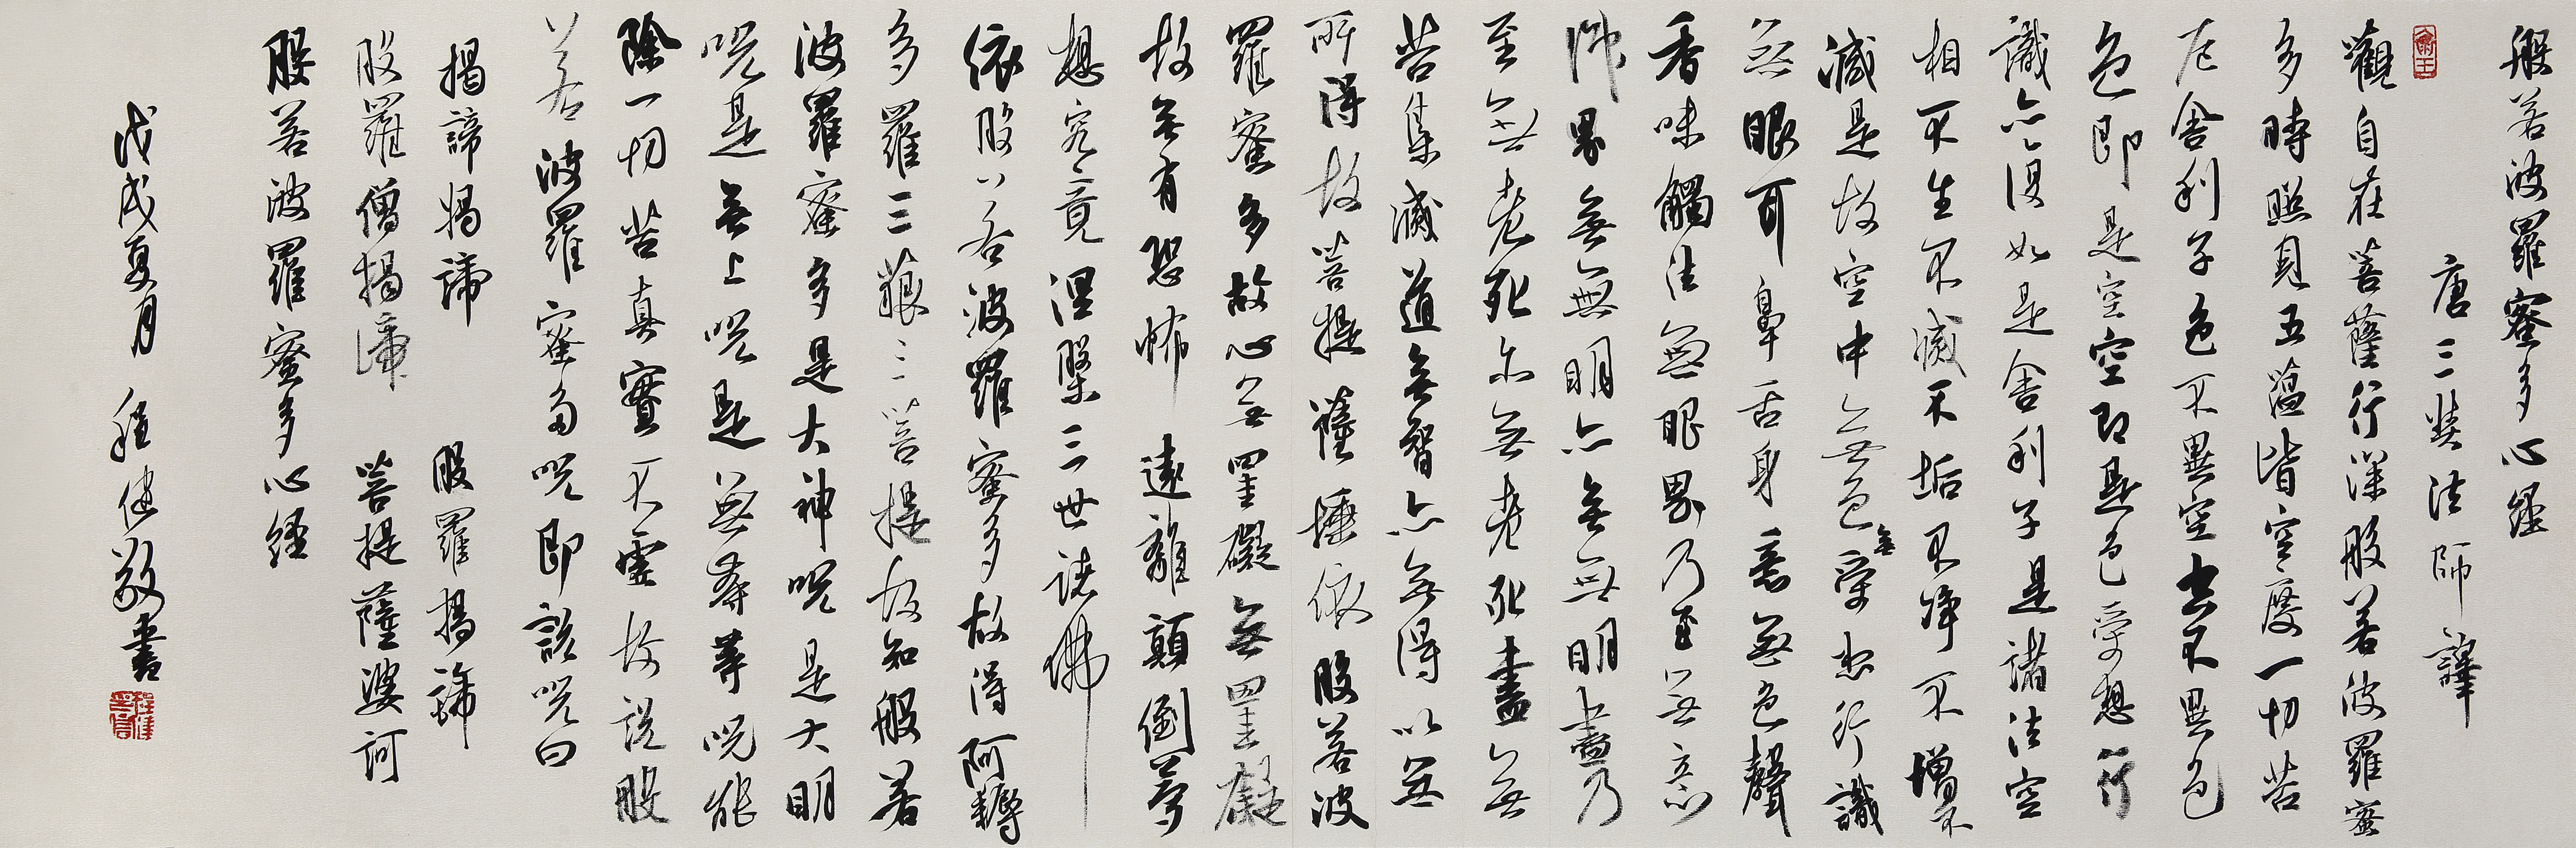 般若波羅蜜多心經
唐三奘法師譯
觀自在菩薩行深般若波羅蜜
多時照見五蘊皆空度一切苦
厄舍利子色不異空空不異色
色即是空空即是色受想行
識亦復如是舍利子是諸法空
相不生不滅不垢不淨不增不
滅是故空中無色無受想行識
無眼耳鼻舌身意無色聲
香味觸法無眼界乃至無意
識界無無明亦無無明盡乃
至無老死亦無老死盡無
苦集滅道無智亦無得以無
所得故菩提薩埵依般若波
羅蜜多故心無罣礙無罣礙
故無有恐怖遠離顛倒夢
想究竟涅槃三世諸佛
依般若波羅蜜多故得阿耨
多羅三藐三菩提故知般若
波羅蜜多是大神咒是大明
咒是無上咒是無等等咒能
除一切苦真實不虛故說般
若波羅蜜多咒即說咒曰
揭諦揭諦 般羅揭諦
般羅僧揭諦 菩提薩婆訶
般若波羅蜜多心經
戊戌夏月 程 敬書